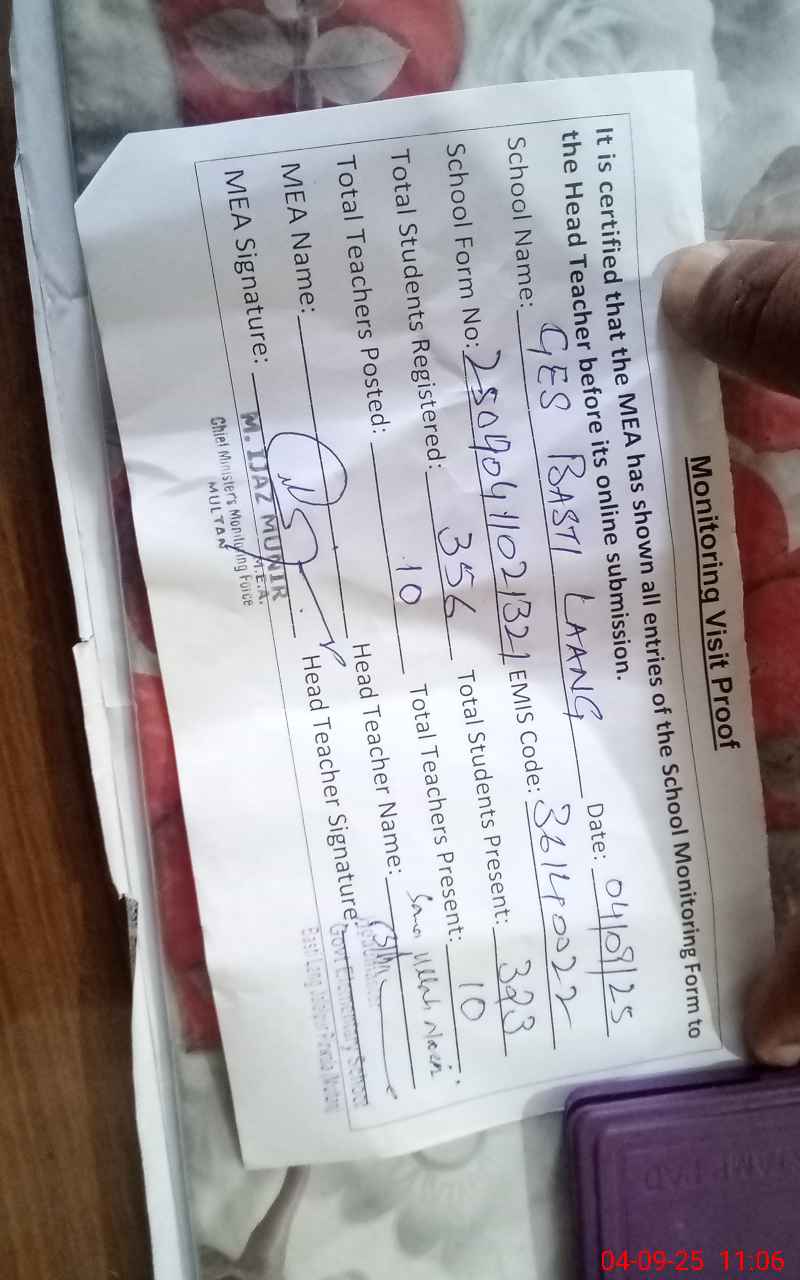 Monitoring Visit Proof
It is certified that the MEA has shown all entries of the School Monitoring Form to
the Head Teacher before its online submission.
School Name: GES BASTI LAANG Date: 04/09/25
School Form No: 2509041021321 EMIS Code: 36140022
Total Students Registered: 356 Total Students Present: 323
Total Teachers Posted: 10 Total Teachers Present: 10
MEA Name: Head Teacher Name:
MEA Signature: Head Teacher Signature:
M. IJAZ MUNIR
M.E.A.
Chief Minister's Monitoring Force
MULTAN
Govt. Elementary School
STAMP PAD
04-09-25 11:06